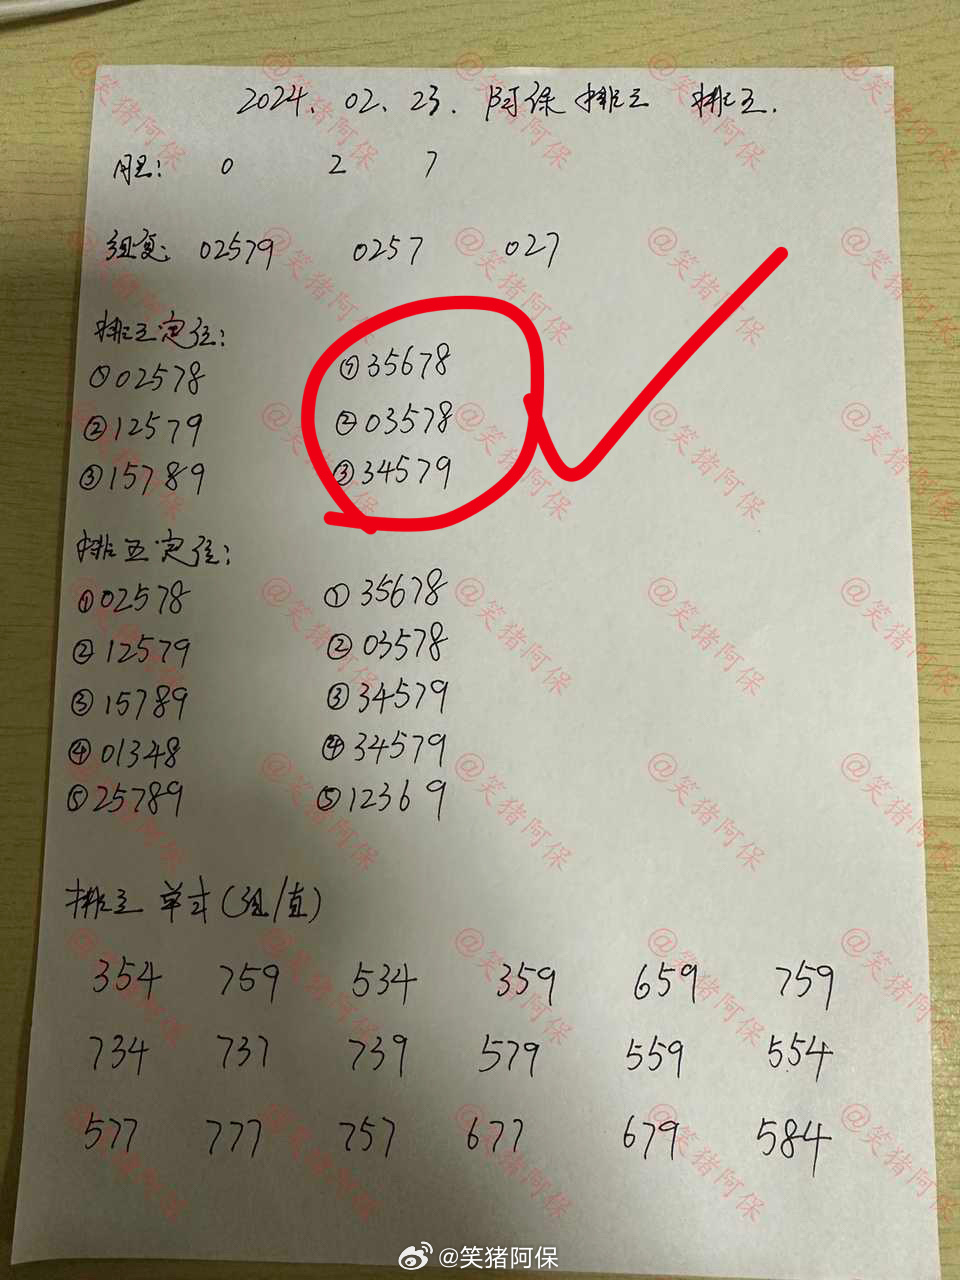 2024.02.23. 阿保排三 排五.
胆: 0 2 7
组复: 02579 0257 027
排三定位:
①02578 ①35678
②12579 ②03578
③15789 ③34579
排五定位:
①02578 ①35678
②12579 ②03578
③15789 ③34579
④01348 ④34579
⑤25789 ⑤12369
排三 单式(组/直)
354 759 534 359 659 759
734 737 739 579 559 554
577 777 757 677 679 584
@笑猪阿保